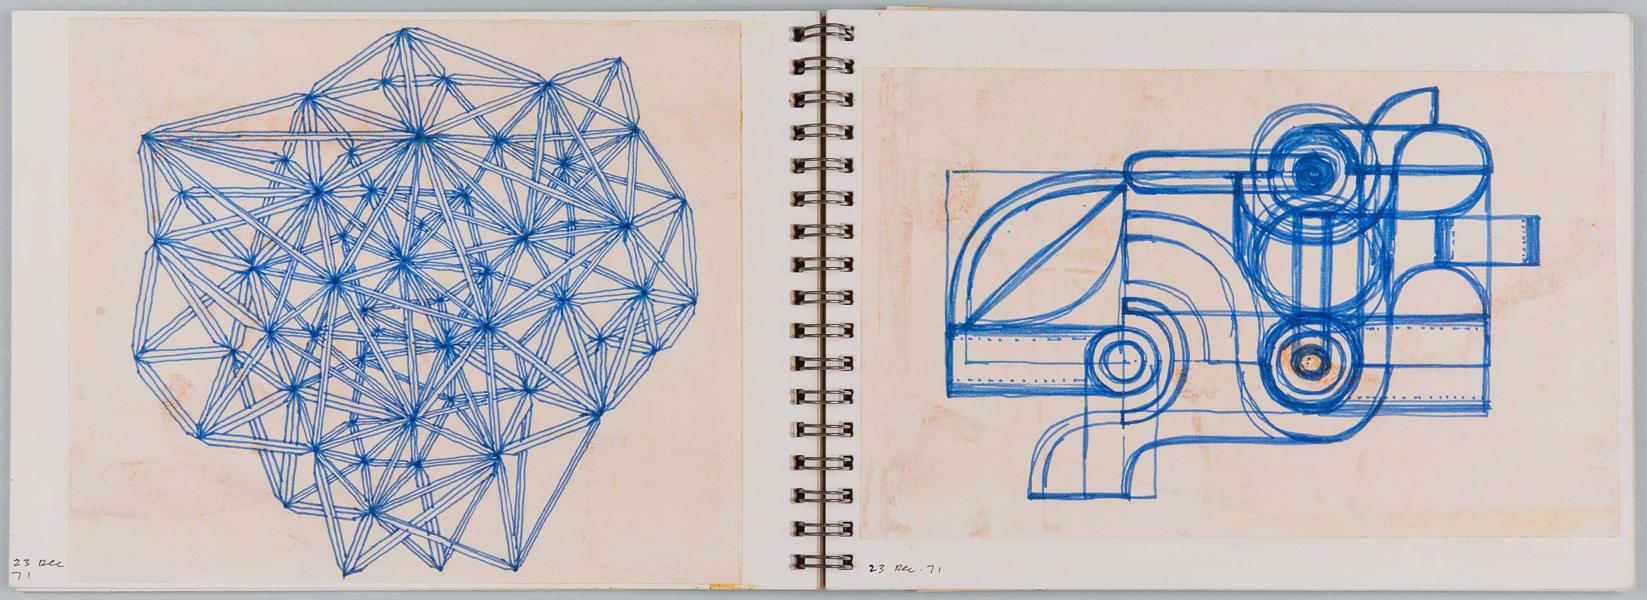 23 Dec
71
23 Dec. 71